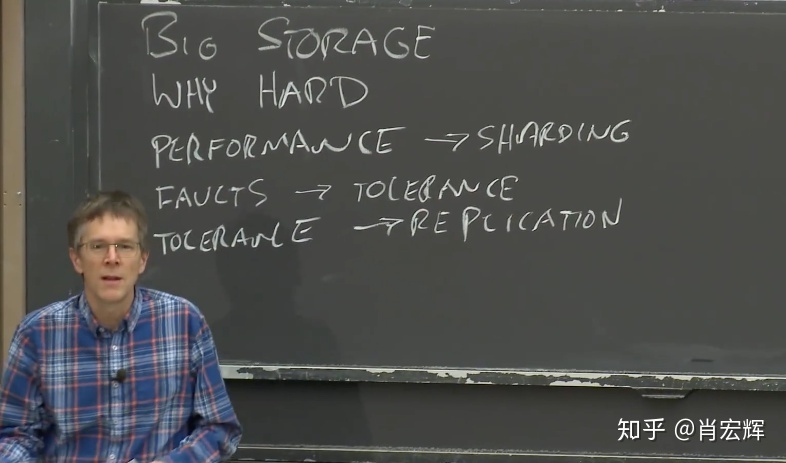 BIG STORAGE
WHY HARD
PERFORMANCE → SHARDING
FAULTS → TOLERANCE
TOLERANCE → REPLICATION
知乎 @肖宏辉